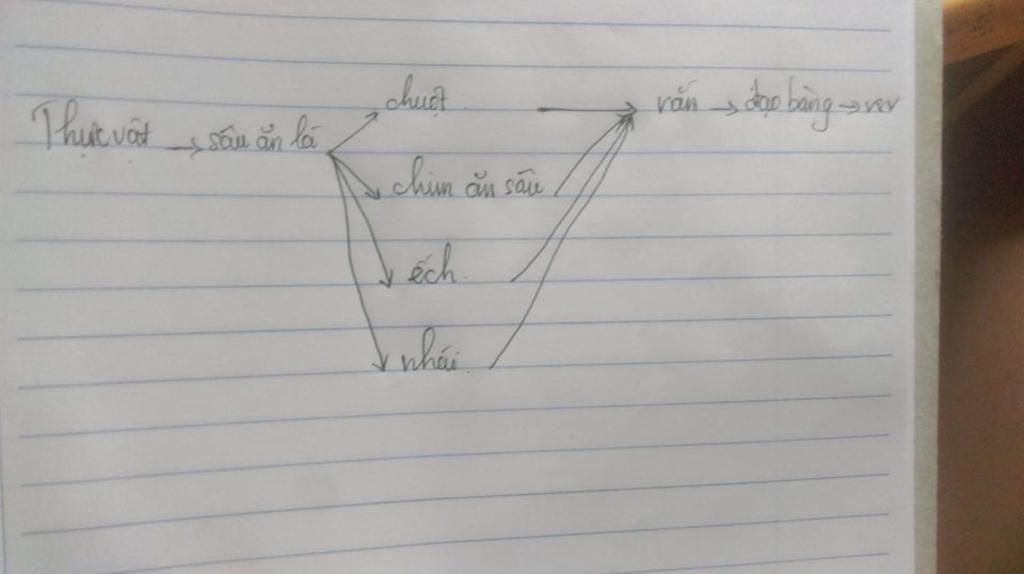 chuột → rắn → đạo bàng → vsv
Thực vật → sâu ăn lá
chim ăn sâu
ếch
nhái